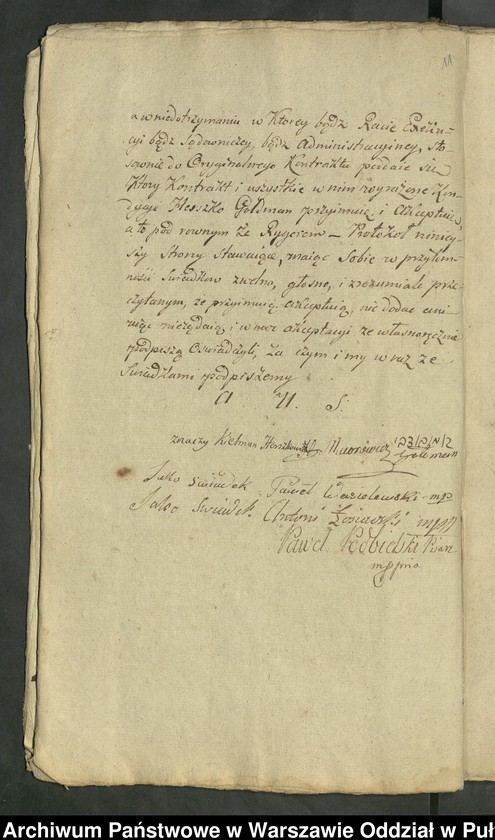 11
a w niedotrzymaniu w Ktorey bądz Racie Exekucyi bądz Sądowniczey, bądz Administracyiney, stosownie do Oryginalnego Kontraktu poddaie się
Ktory Kontrakt i wszystkie w nim wyrażone Kondycye Herszko Goldman przyimuie i akceptuie,
a to pod rownym że Rygorem – Protokoł ninieyszy Strony Stawaiące, maiąc Sobie w przytomności Swiadkow zwolna, głosno, i zrozumiale przeczytanym, ze przyimuią akceptuią, nic dodac ani
uiąc nieżądaią i w moc akceptacyi ze własnoręcznie
podpiszą Oswiadczyli, Za czym i my wraz ze
Swiadkami podpiszemy
znaczy Kielman Herszkowicz
Goldmann
Jako swiadek Paweł Wasiolewski mp
Jako Swiadek Antoni mpp
Paweł Podbielski Pisarz
mppria
Archiwum Państwowe w Warszawie Oddział w Puł